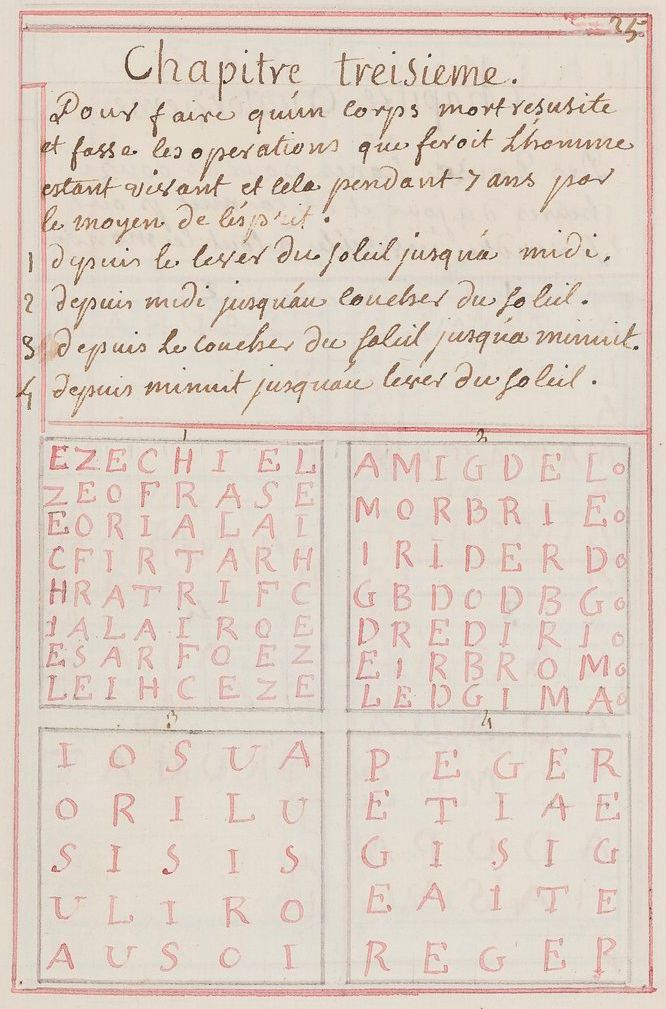 25.
Chapitre treisieme.
Pour faire qu'un corps mort resusite
et fasse les operations que feroit L'homme
estant vivant et cela pendant 7 ans par
le moyen de l'ésprit.
1 depuis le lever du soleil jusqu'a midi.
2 depuis midi jusqu'au coucher du soleil.
3 depuis le coucher du soleil jusqu'a minuit.
4 depuis minuit jusqu'au lever du soleil.
1
E Z E C H I E L
Z E O F R A S E
E O R I A L A I
C F I R T A R H
H R A T R I F C
I A L A I R O E
E S A R F O E Z
L E I H C E Z E
2
A M I G D E L o
M O R B R I E o
I R I D E R D o
G B D O D B G o
D R E D I R I o
E I R B R O M o
L E D G I M A o
3
I O S U A
O R I L U
S I S I S
U L I R O
A U S O I
4
P E G E R
E T I A E
G I S I G
E A I T E
R E G E P